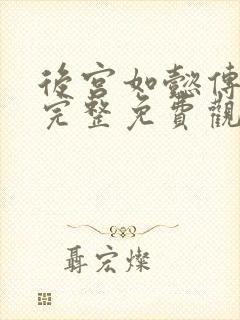 後宮如懿傳
完整免費觀
聶宏燦